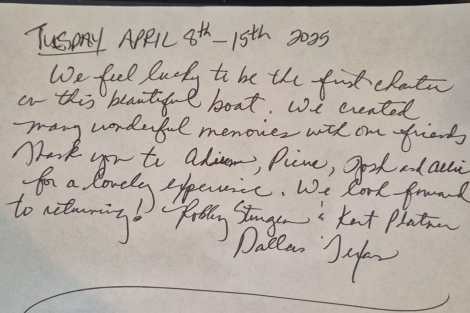 TUSDAY APRIL 8th - 15th 2025
We feel lucky to be the first charter
on this beautiful boat. We created
many wonderful memories with our friends
Thank you to Pierre, Josh and Allie
for a lovely experience. We look forward
to returning! Robby & Kent Platner
Dallas Texas